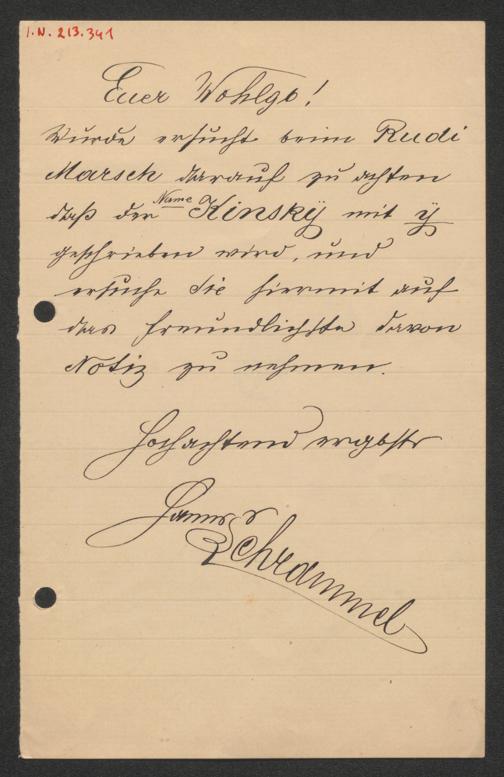 I.N. 213.341
Euer Wohlgb!
Wurde ersucht beim Rudi
Marsch darauf zu achten
daß der Name Kinskÿ mit ÿ
geschrieben wird, und
ersuche Sie hiermit auf
das freundlichste davon
Notiz zu nehmen.
Hochachtend ergbstr
Hanns
Schrammel